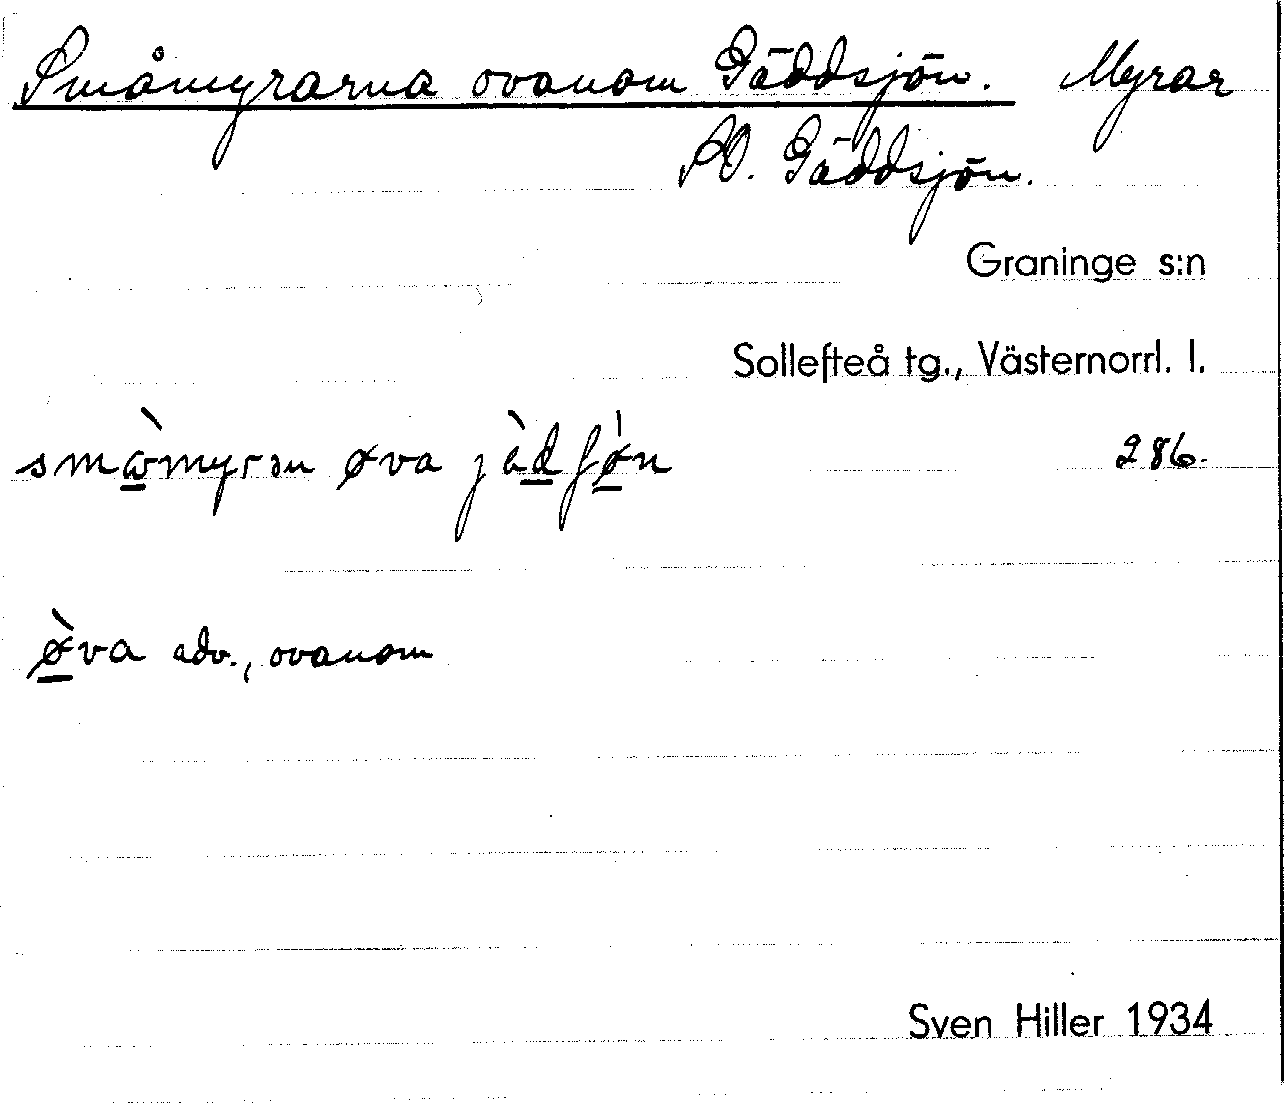 Småmyrarna ovanom Gäddsjön. Myrar
SO. Gäddsjön.
Graninge s:n
Sollefteå tg., Västernorrl. l.
småmyrən øva jàdʃøn 286.
øva adv., ovanom
Sven Hiller 1934